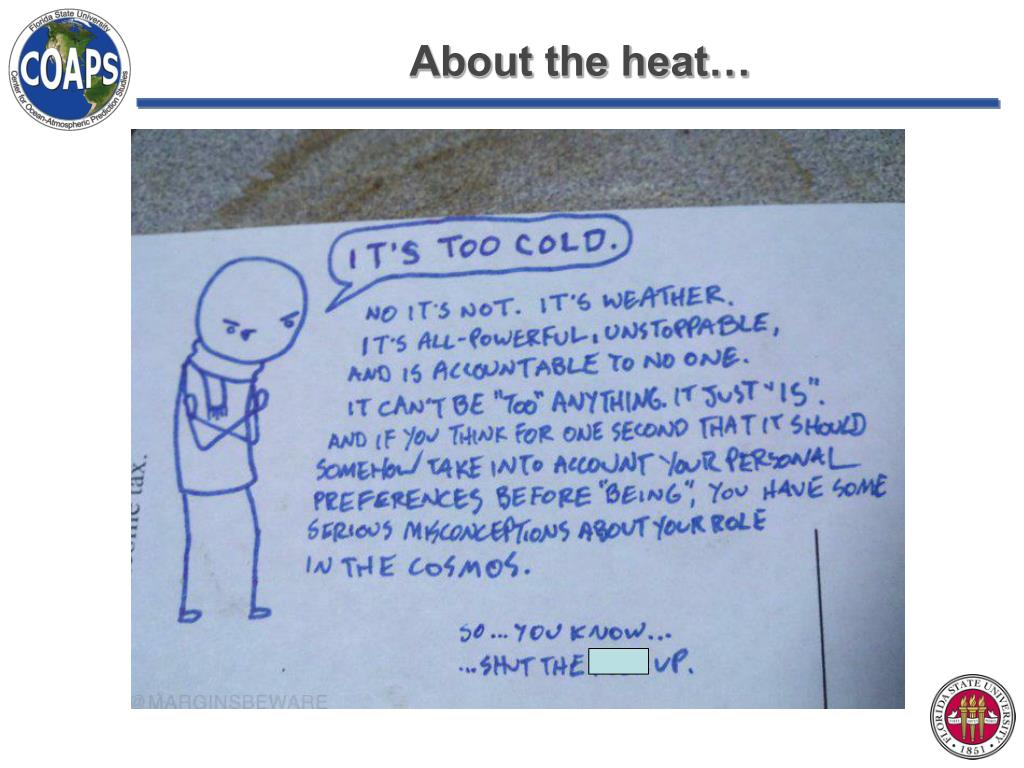 Florida State University
COAPS
Center for Ocean-Atmospheric Prediction Studies
About the heat…
IT'S TOO COLD.
NO IT'S NOT. IT'S WEATHER.
IT'S ALL-POWERFUL, UNSTOPPABLE,
AND IS ACCOUNTABLE TO NO ONE.
IT CAN'T BE "TOO" ANYTHING. IT JUST "IS".
AND IF YOU THINK FOR ONE SECOND THAT IT SHOULD
SOMEHOW TAKE INTO ACCOUNT YOUR PERSONAL
PREFERENCES BEFORE "BEING", YOU HAVE SOME
SERIOUS MISCONCEPTIONS ABOUT YOUR ROLE
IN THE COSMOS.
SO... YOU KNOW...
...SHUT THE UP.
tax.
@MARGINSBEWARE
FLORIDA STATE UNIVERSITY
1851